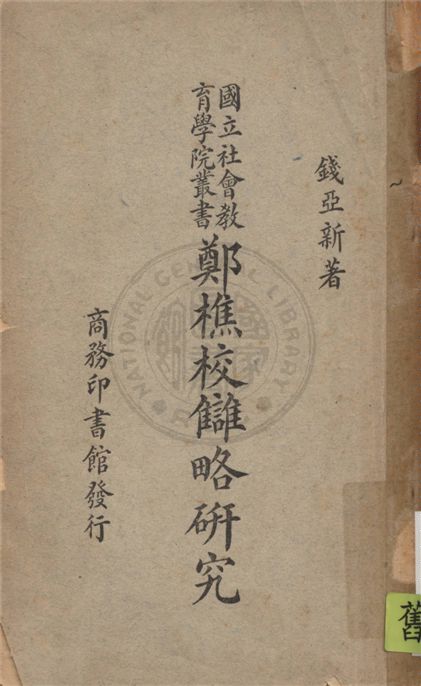 錢亞新著
國立社會教
育學院叢書
鄭樵校讎略研究
商務印書館發行
NATIONAL CENTRAL LIBRARY
舊